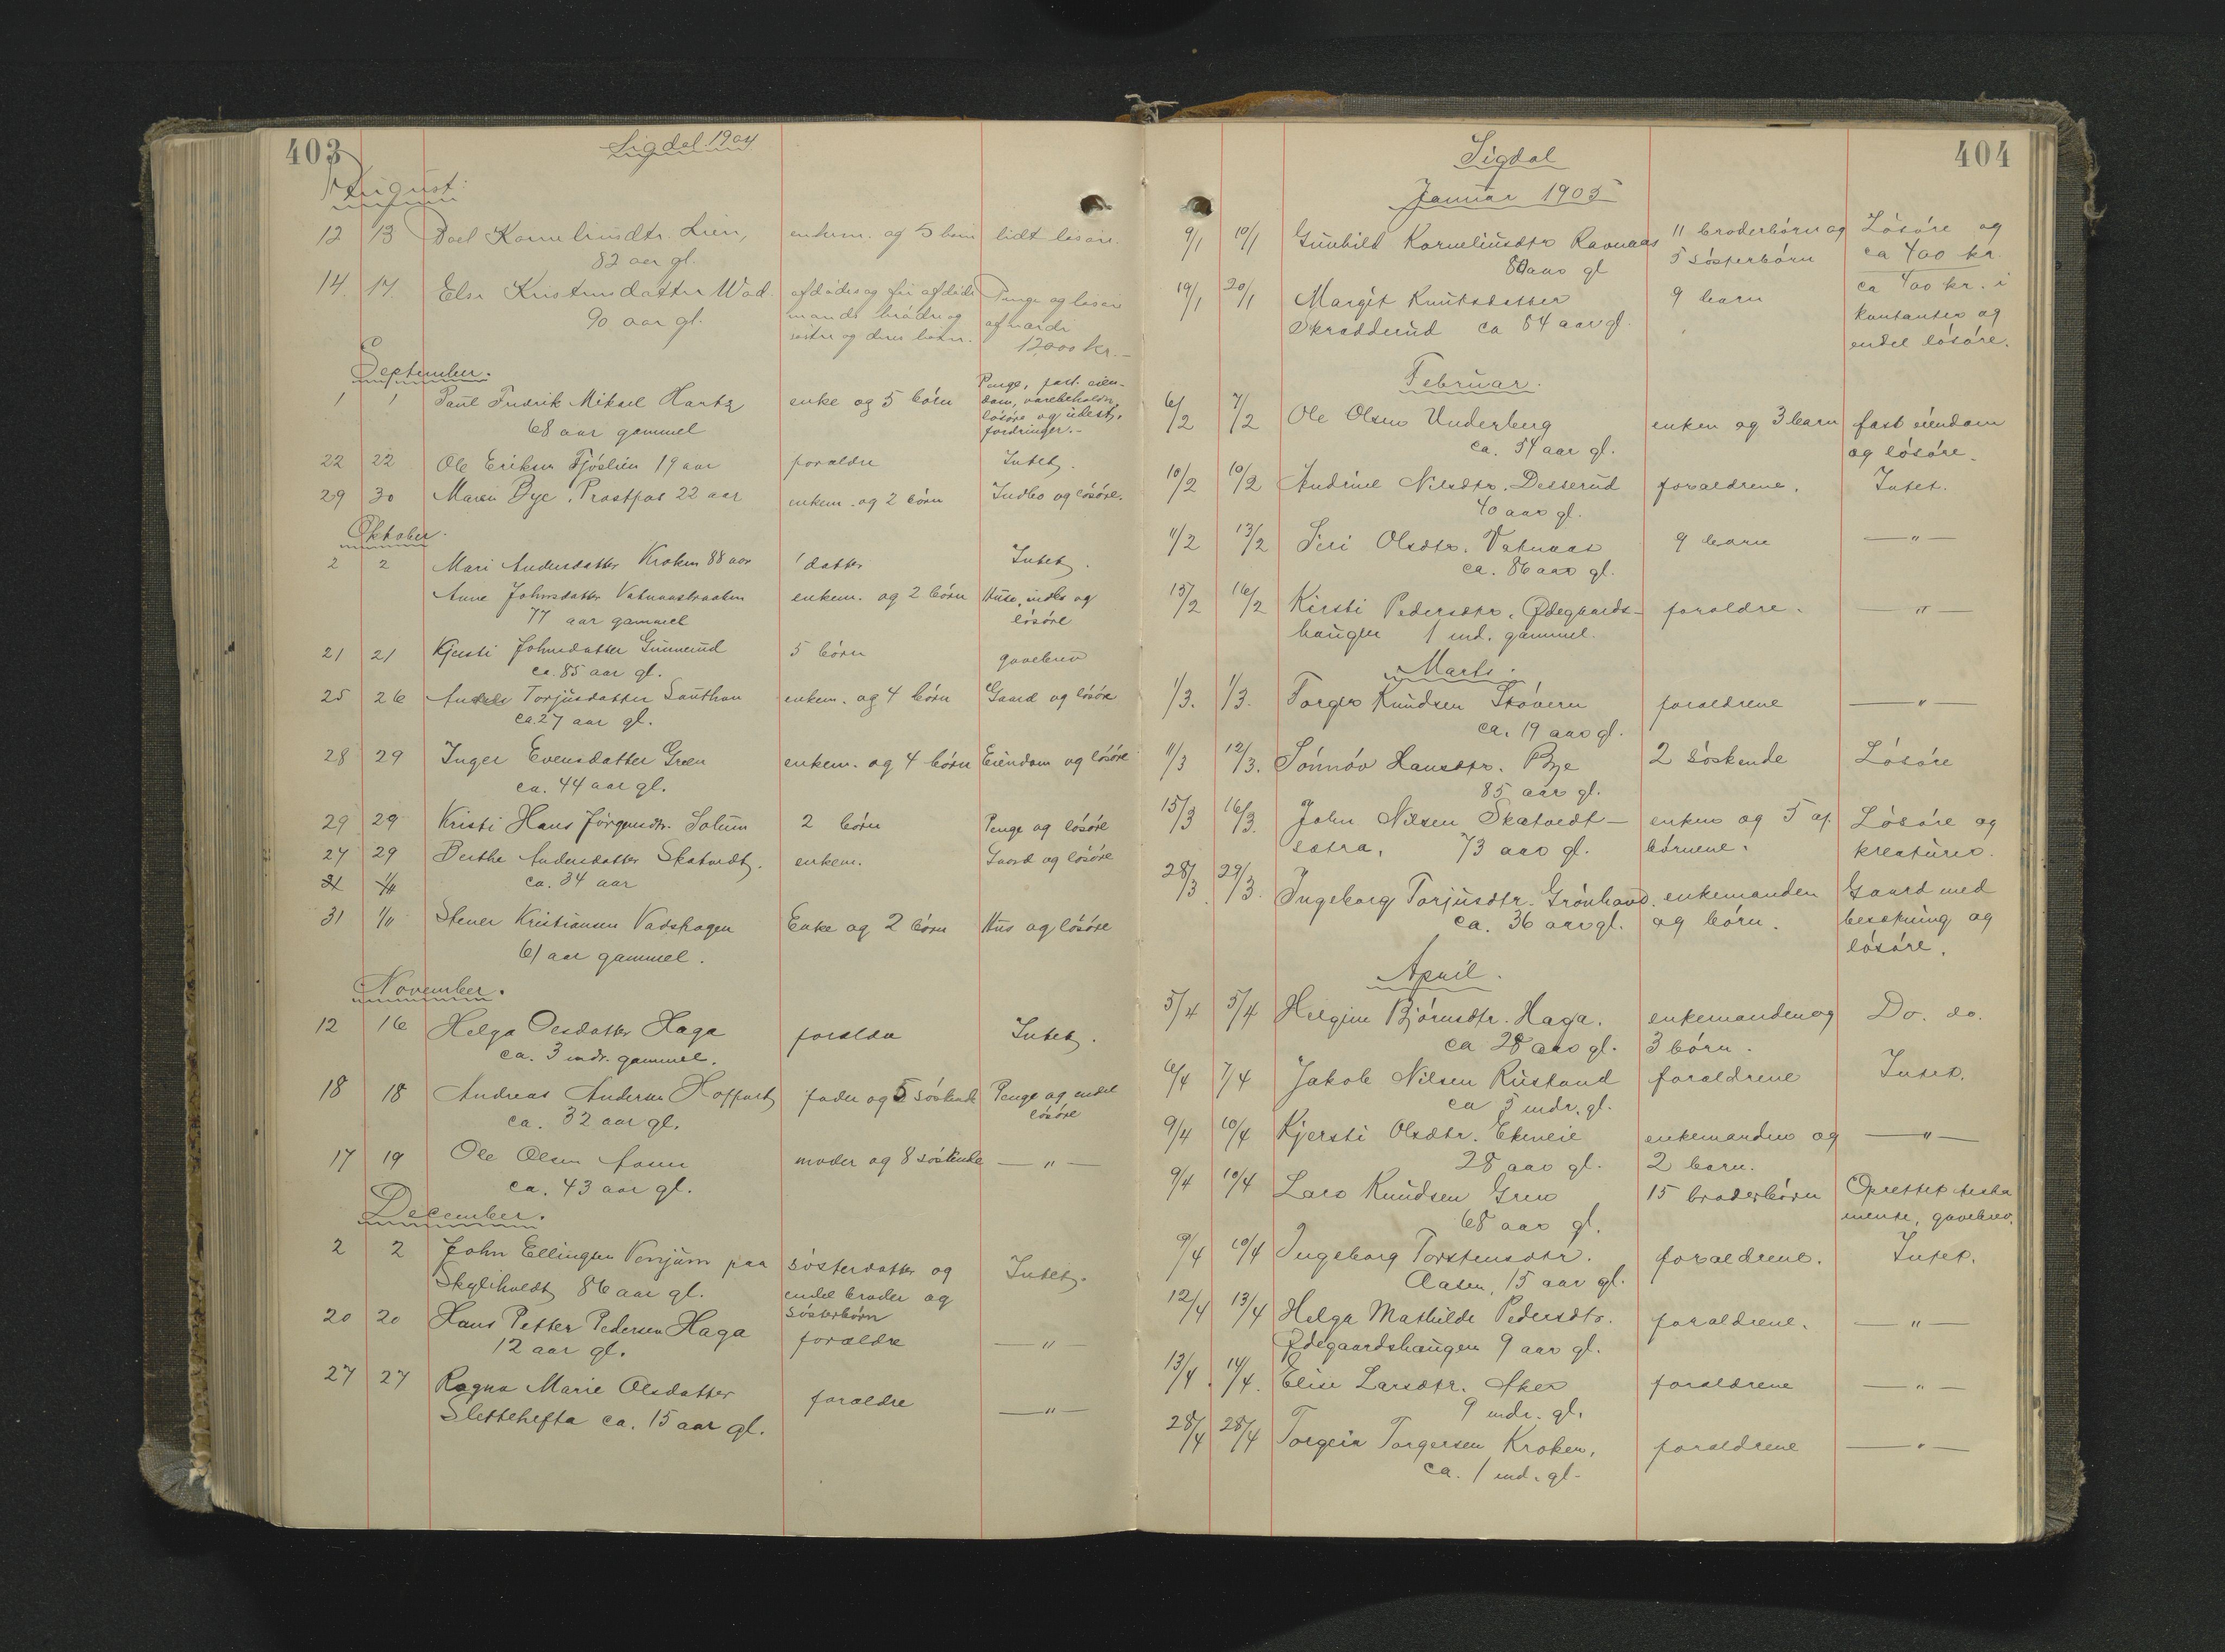 403
Sigdal 1904
August.
12 13 Korneliusdtr. Lien, enkem. og 5 børn lidt løsøre.
82 aar gl.
14 17 Else Kristensdatter afdødes og afdøde Penge og løsøre
90 aar gl. mands brødre og af værdi
søstre og deres børn. 12,000 kr.-
September.
1 1 Paul Fredrik Mikael Hartz enke og 5 børn Penge, fast eien-
68 aar gammel dom, varebeholdn.
løsøre og udest.
fordringer.-
22 22 Ole Eriksen Fjøslien 19 aar forældre Intet.
29 30 Maren Bye, Prestfos 22 aar enkem. og 2 børn Indbo og løsøre.
Oktober.
2 2 Mari Andersdatter Kroken 88 aar 1 datter Intet.
Anne Johnsdatter Vatnaasbraaten enkem. og 2 børn Huse, indbo og
77 aar gammel løsøre
21 21 Kjersti Johnsdatter Gunnerud 5 børn gavebrev
ca. 85 aar gl.
25 26 Torjusdatter enkem. og 4 børn Gaard og løsøre
ca. 27 aar gl.
28 29 Inger Evensdatter Green enkem. og 4 børn Eiendom og løsøre
ca. 44 aar gl.
29 29 Kristi Hans Jørgensdtr. Solum 2 børn Penge og løsøre
27 29 Berthe Andersdatter Skatvedt. enkem. Gaard og løsøre
31 1/11 ca. 34 aar
31 1/11 Stener Kristiansen Vadshagen Enke og 2 børn Hus og løsøre
61 aar gammel.
November.
12 16 Helga Olesdatter Haga forældre Intet.
ca. 3 mdr. gammel.
18 18 Andreas Andersen Hoffart fader og 5 søskende Penge og endel
ca. 32 aar gl. løsøre
17 19 Ole Olsen moder og 8 søskende — " —
ca. 43 aar gl.
December.
2 2 John Ellingsen paa søsterdatter og Intet.
86 aar gl. endel broder og
søsterbørn
20 20 Hans Petter Pedersen Haga forældre — " —
12 aar gl.
27 27 Ragna Marie Olesdatter forældre — " —
Slettehefta ca. 15 aar gl.
404
Sigdal
Januar 1905
9/1 10/1 Gunhild Korneliusdtr Ravnaas 11 broderbørn og Løsøre og
80 aar gl 5 søsterbørn ca 400 kr.
19/1 20/1 Margit Knutsdatter 9 barn ca 400 kr. i
Skradderud ca 84 aar gl. kontanter og
endel løsøre.
Februar.
6/2 7/2 Ole Olsen Underberg enken og 3 barn fast eiendom
ca. 54 aar gl. og løsøre.
10/2 10/2 Andrine Nilsdtr. Desserud forældrene. Intet.
40 aar gl.
11/2 13/2 Siri Olsdtr. Vatnaas 9 barn — " —
ca. 86 aar gl.
15/2 16/2 Kirsti Pedersdtr. Ødegaards- forældre. — " —
haugen 1 md. gammel.
Marts.
1/3. 1/3. Torger Knudsen Skovern forældrene — " —
ca. 19 aar gl.
11/3 12/3. Sønnøv Hansdtr. Bye 2 søskende Løsøre
85 aar gl.
15/3 16/3. John Nilsen Skatvedt- enken og 5 af Løsøre og
sætra, 73 aar gl. børnene. kreaturer.
28/3 29/3. Ingeborg Torjusdtr. Grønhovd. enkemanden Gaard med
ca. 36 aar gl. og børn. besætning og
løsøre.
April.
5/4 5/4 Helgine Bjørnsdtr. Haga. enkemanden og Do. do.
ca 28 aar gl. 3 børn.
6/4 7/4 Jakob Nilsen Rustand forældrene Intet.
ca 5 mdr. gl.
9/4 10/4 Kjersti Olsdtr. Ekeneie enkemanden og — " —
28 aar gl. 2 barn.
9/4 10/4 Lars Knudsen Gren 15 broderbørn Oprettet testa
68 aar gl. mente, gavebrev.
9/4 10/4 Ingeborg Torstensdtr. forældrene. Intet.
Aasen, 15 aar gl.
12/4 13/4 Helga Mathilde Pedersdtr. forældrene. — " —
Ødegaardshaugen 9 aar gl.
13/4. 14/4. Elise Larsdtr. Aker forældrene — " —
9 mdr. gl.
28/4 28/4 Torgein Torgersen Kroken, forældrene — " —
ca. 1 md. gl.